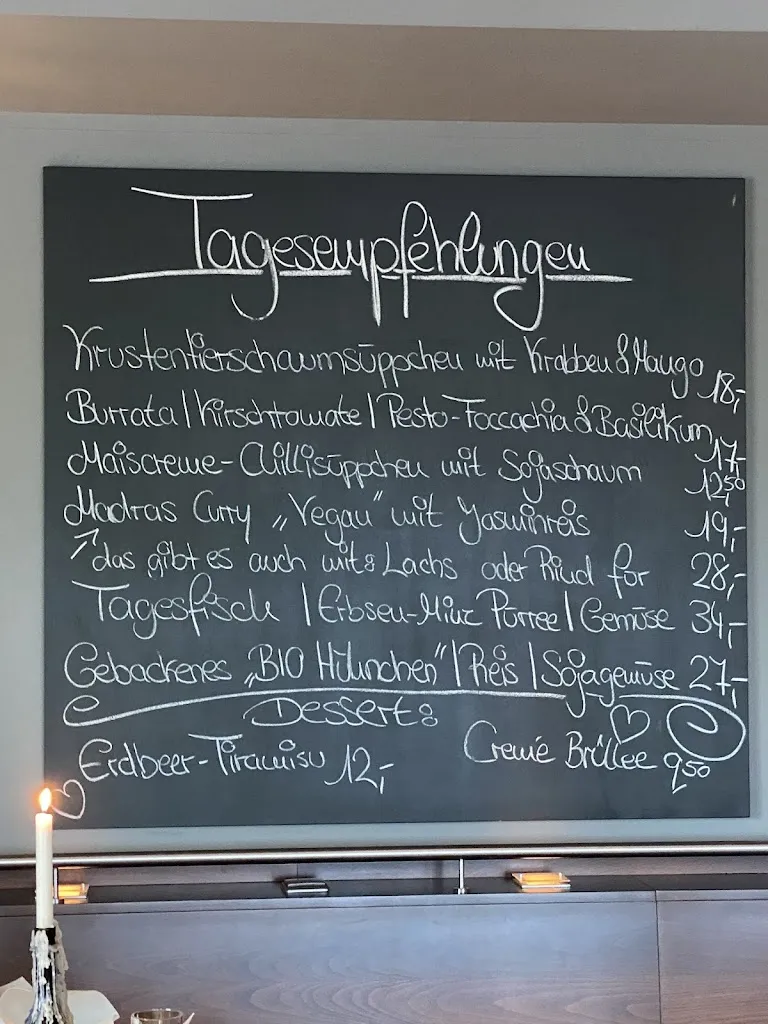 Tagesempfehlungen
Krustentierschaumsüppchen mit Krabben & Mango 18,-
Burrata | Kirschtomate | Pesto-Foccachia & Basilikum 17,-
Maiscreme-Chillisüppchen mit Sojaschaum 12,50
Madras Curry „Vegan“ mit Jasminreis 19,-
↗ das gibt es auch mit: Lachs oder Rind für 28,-
Tagesfisch | Erbsen-Minz Pürree | Gemüse 34,-
Gebackenes „BIO Hühnchen“ | Reis | Sojagemüse 27,-
Dessert:
Erdbeer-Tiramisu 12,- Cremé Brûllee 9,50